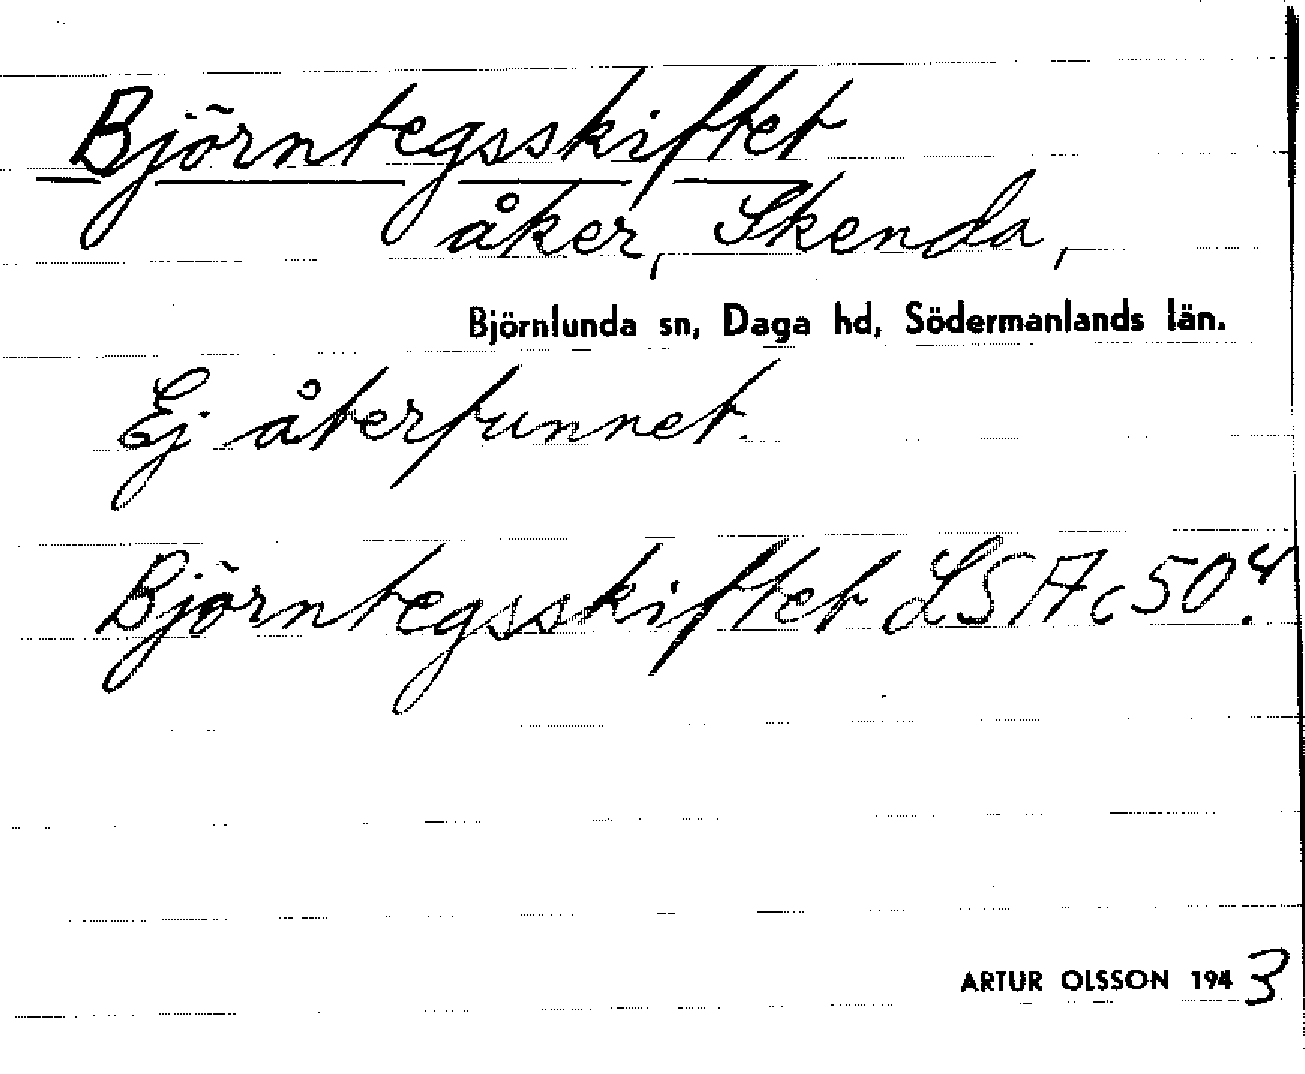 Björntegsskiftet
åker, Skenda,
Björnlunda sn, Daga hd, Södermanlands län.
Ej återfunnet.
Björntegsskiftet LSA c 50
ARTUR OLSSON 1943